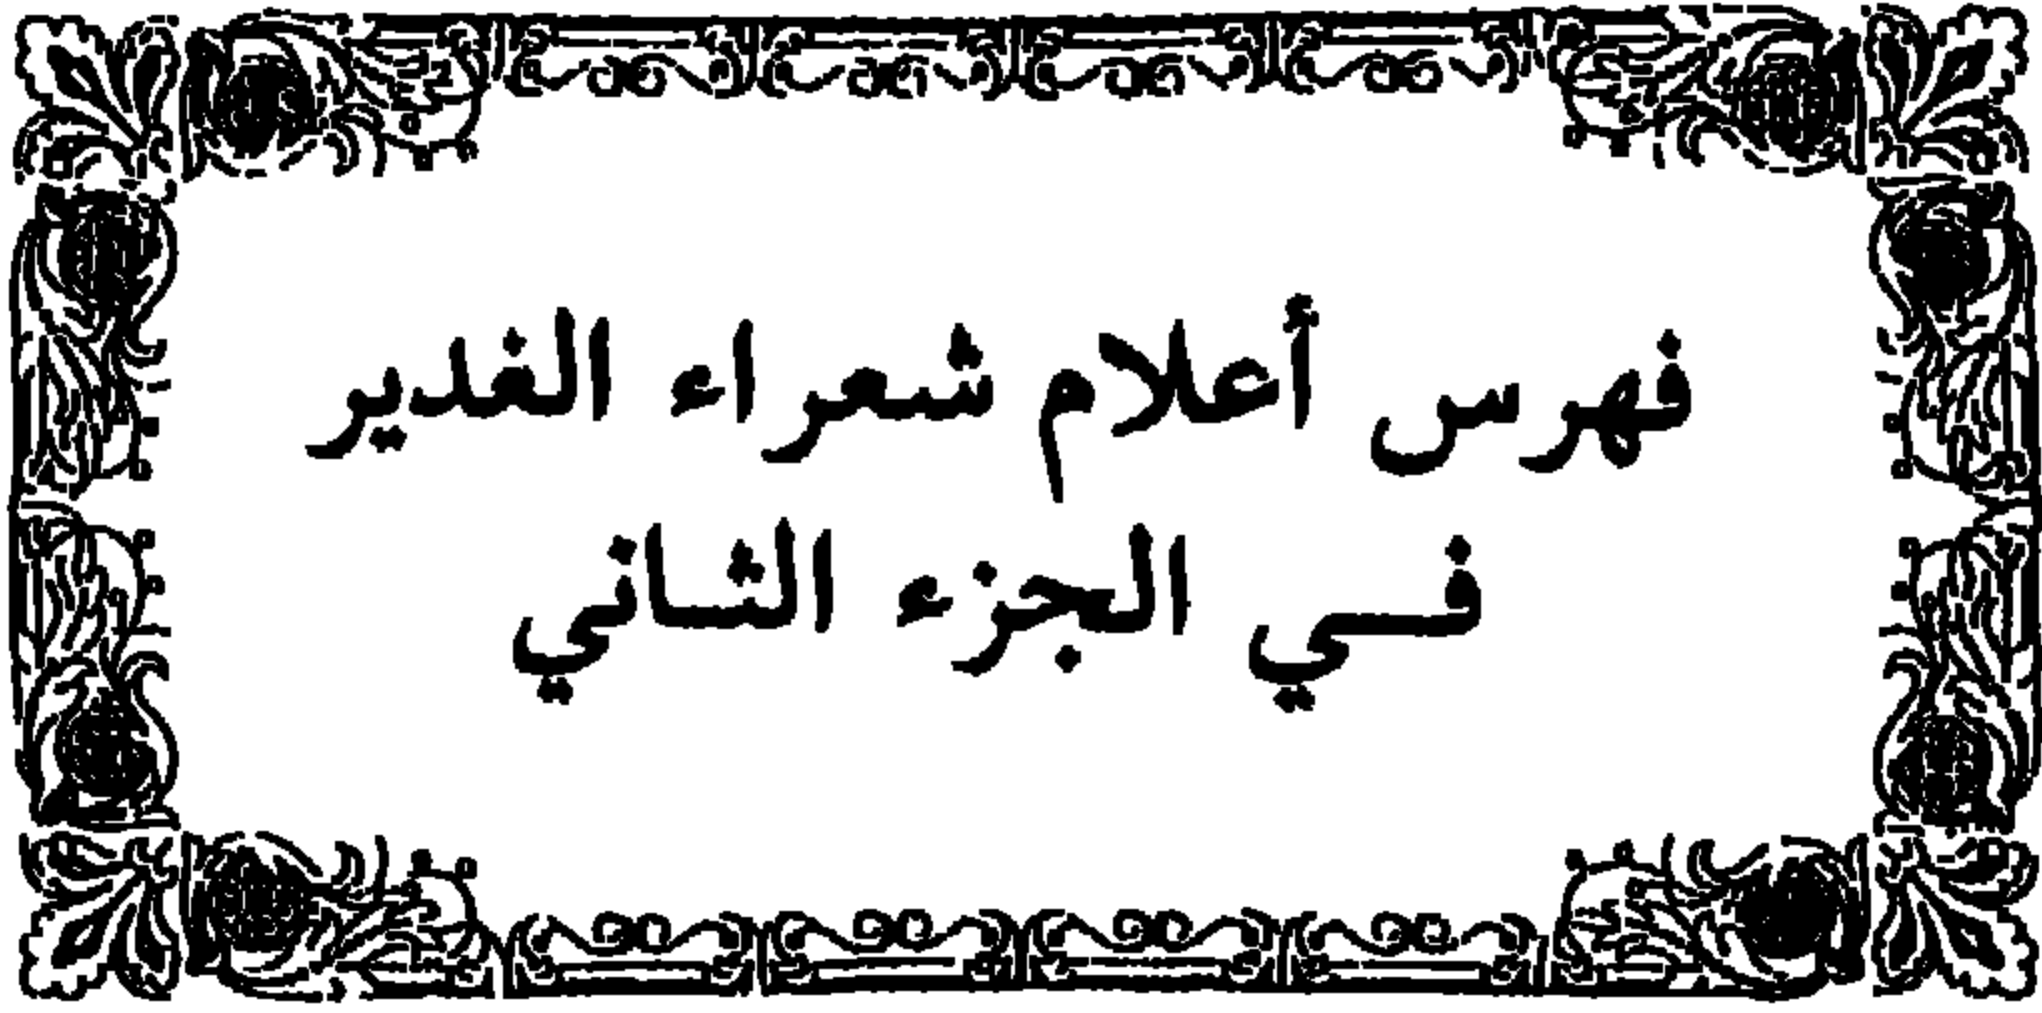 فهرس أعلام شعراء الغدير
في الجزء الثاني